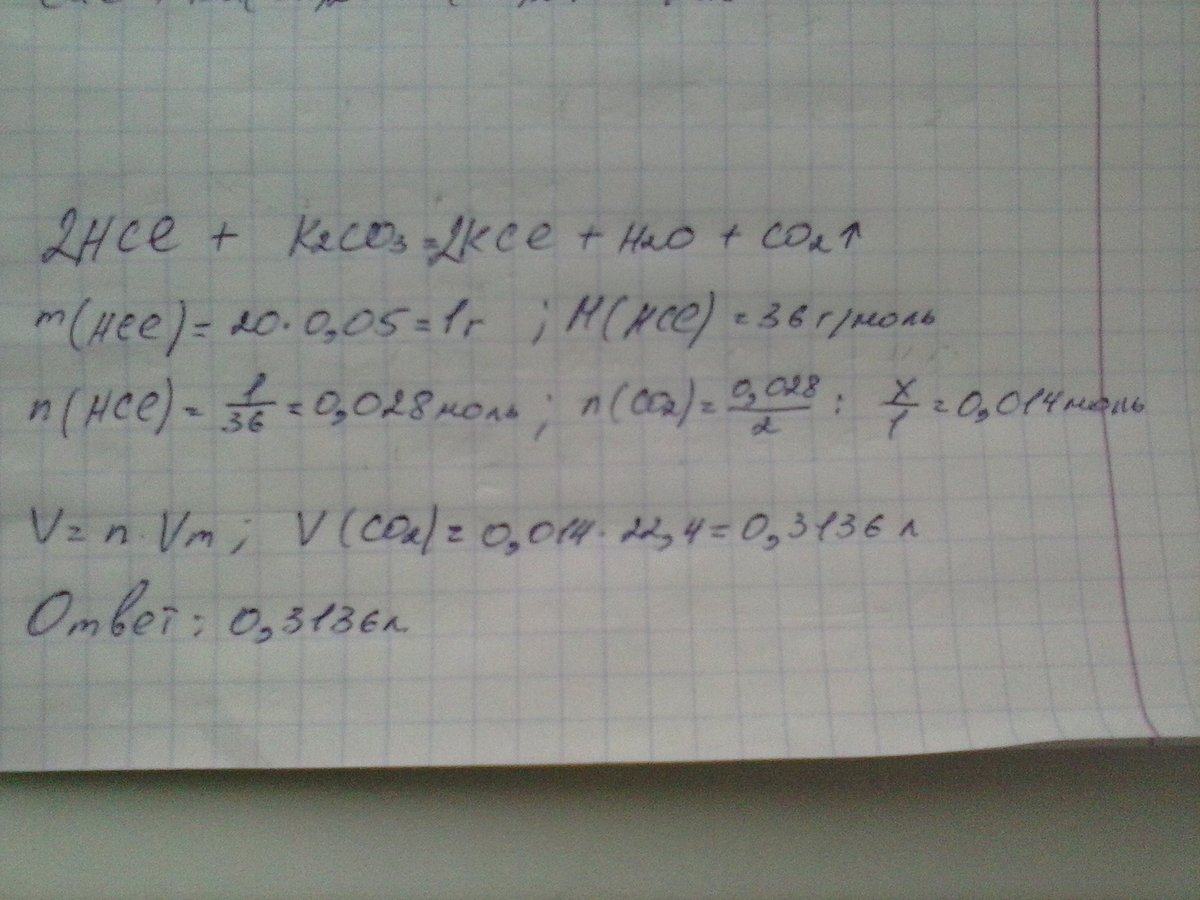 2HCl + K2CO3 = 2KCl + H2O + CO2↑
m(HCl) = 20 · 0,05 = 1г ; M(HCl) = 36 г/моль
n(HCl) = 1/36 = 0,028 моль ; n(CO2) = 0,028/2 : x/1 = 0,014 моль
V = n · Vm ; V(CO2) = 0,014 · 22,4 = 0,3136 л
Ответ : 0,3136 л